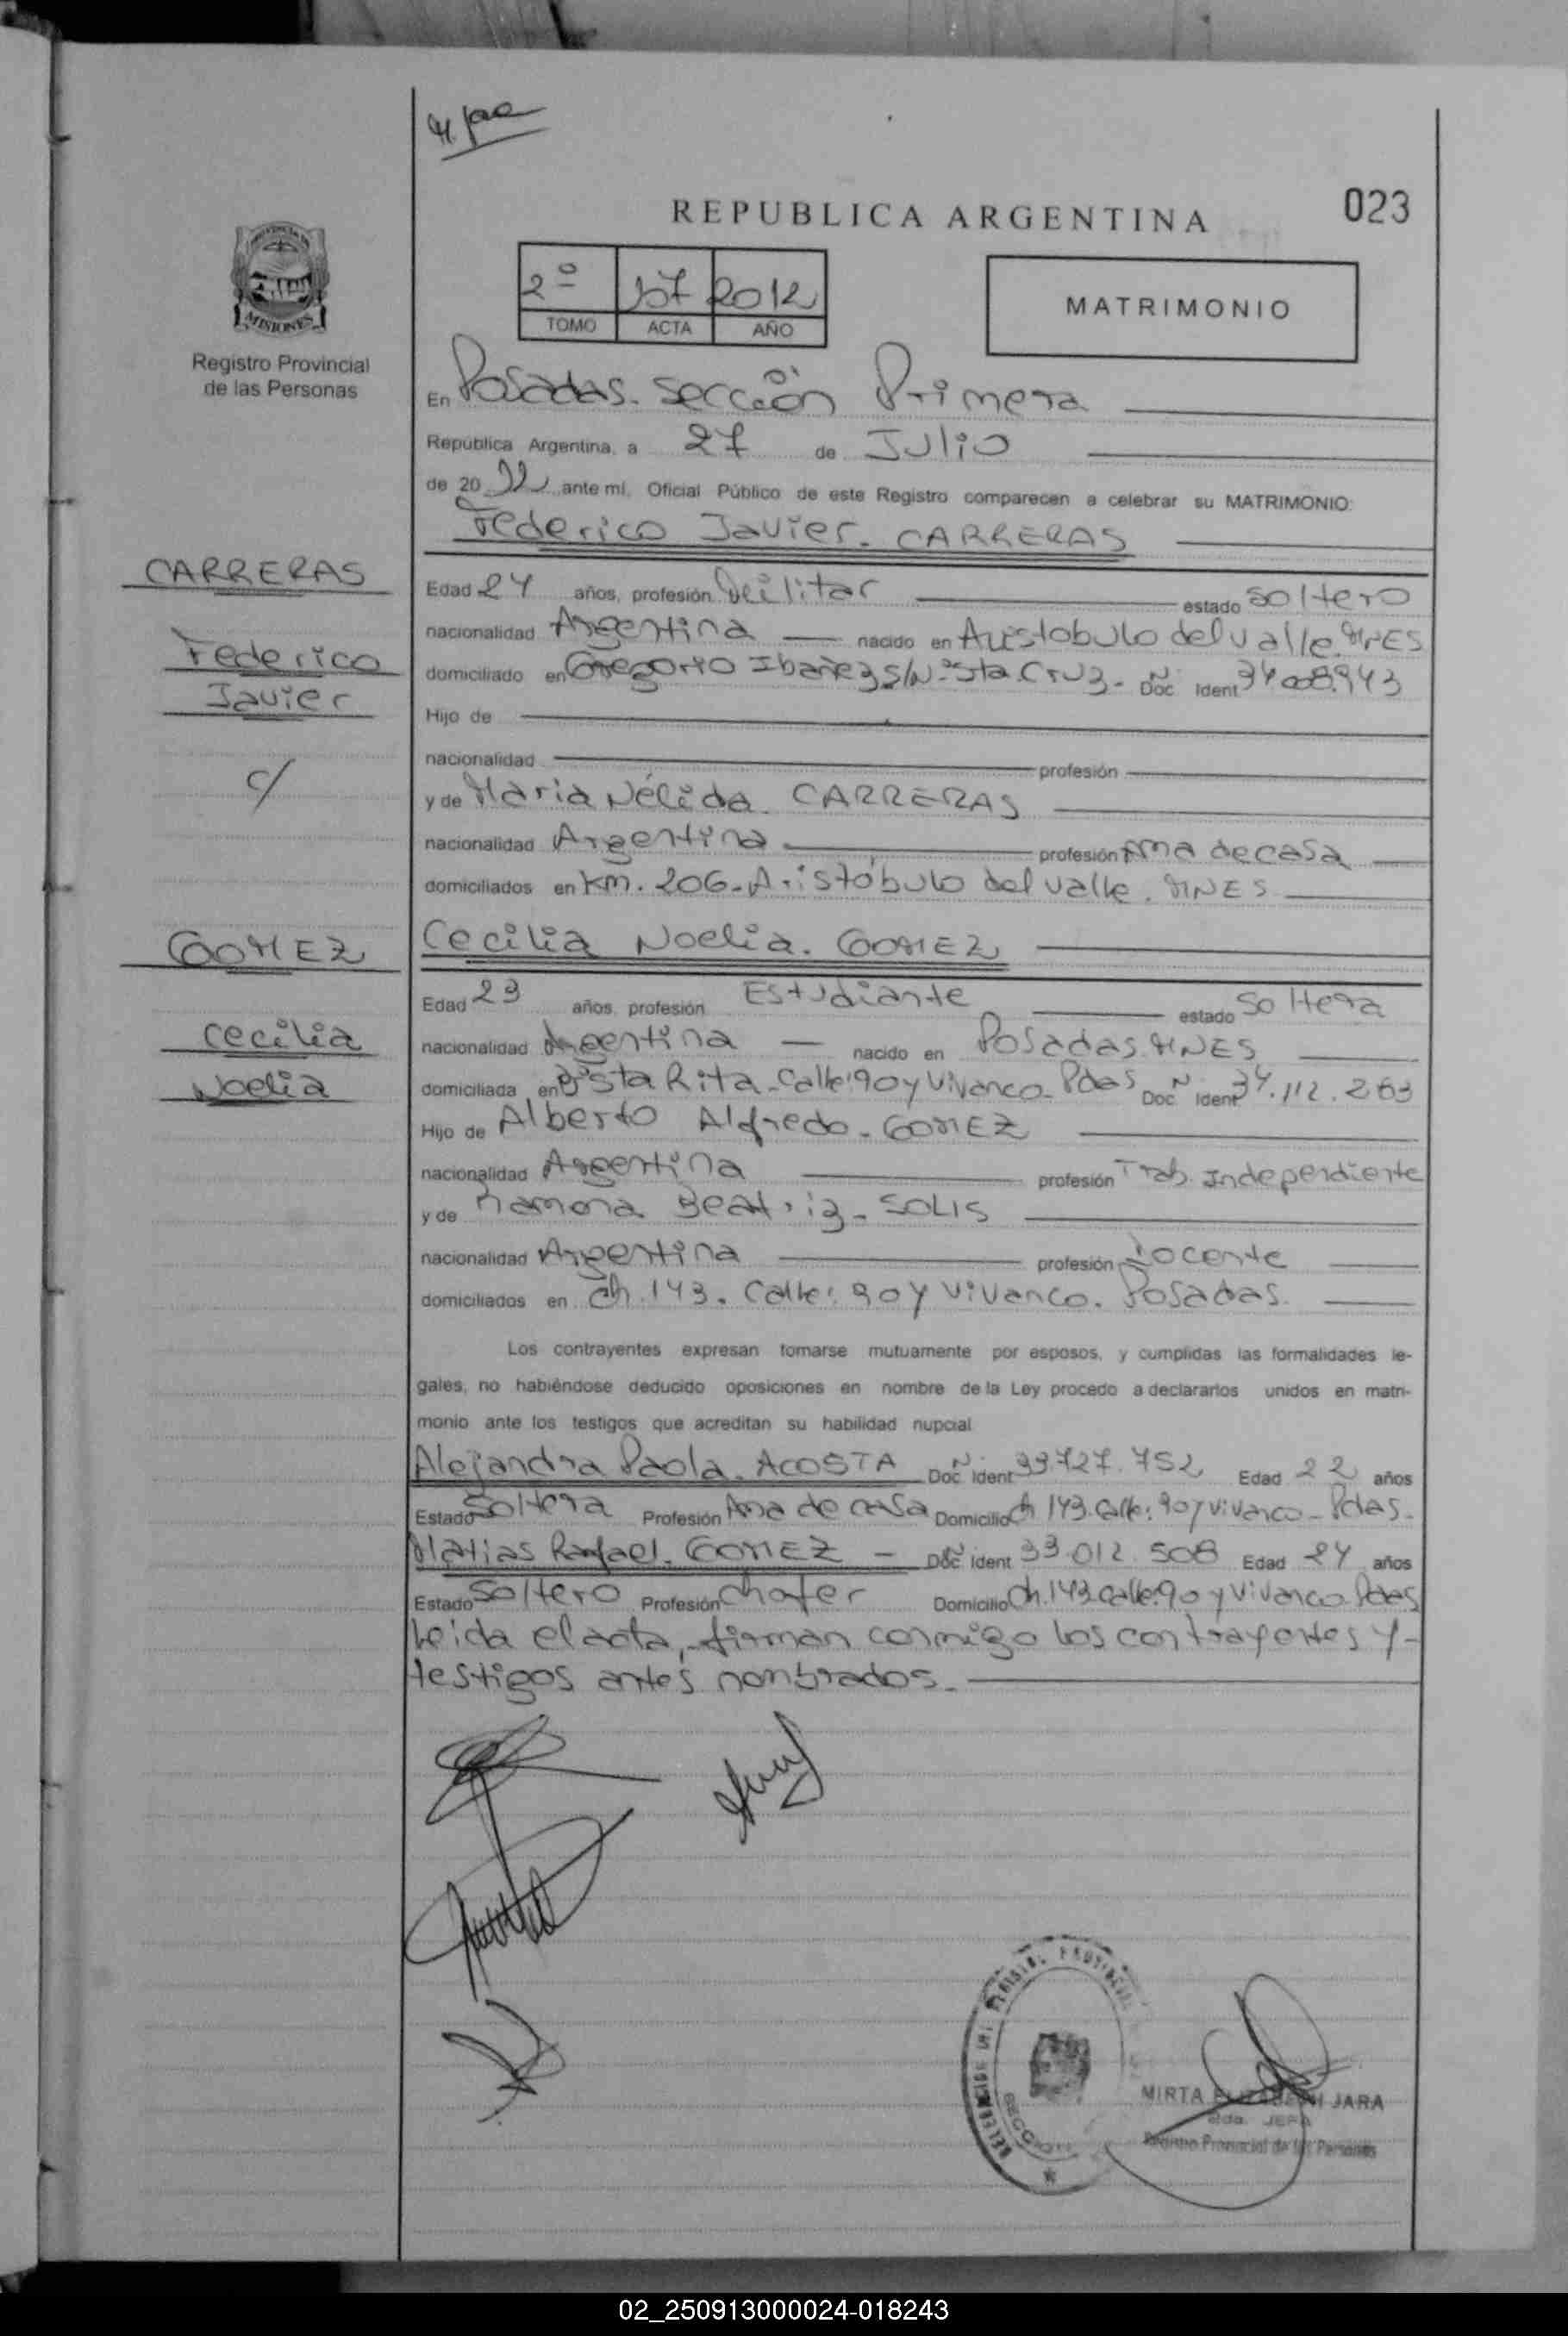 023
REPUBLICA ARGENTINA
2º 107 2012
TOMO ACTA AÑO
MATRIMONIO
MISIONES
Registro Provincial
de las Personas
En Posadas. Sección Primera
República Argentina, a 27 de Julio
de 20 12 ante mí, Oficial Público de este Registro comparecen a celebrar su MATRIMONIO:
Federico Javier. CARRERAS
CARRERAS
Federico
Javier
c/
GOMEZ
Cecilia
Noelia
Edad 24 años, profesión Militar estado soltero
nacionalidad Argentina nacido en Aristobulo del valle. MNES
domiciliado en Gregorio Ibañez S/Nº Sta. Cruz. Doc. Nº Ident 34.008.943
Hijo de
nacionalidad profesión
y de Maria Nélida. CARRERAS
nacionalidad Argentina profesión Ama de casa
domiciliados en Km. 206. Aristóbulo del valle. MNES
Cecilia Noelia. GOMEZ
Edad 23 años, profesión Estudiante estado Soltera
nacionalidad Argentina nacido en Posadas. MNES
domiciliada en Bº Sta Rita. Calle: 90 y Vivanco. Pdas Doc. Nº Ident 34.112.263
Hijo de Alberto Alfredo. GOMEZ
nacionalidad Argentina profesión Trab. Independiente
y de Ramona Beatriz. SOLIS
nacionalidad Argentina profesión Docente
domiciliados en Ch. 143. Calle: 90 y Vivanco. Posadas.
Los contrayentes expresan tomarse mutuamente por esposos, y cumplidas las formalidades le-
gales, no habiéndose deducido oposiciones en nombre de la Ley procedo a declararlos unidos en matri-
monio ante los testigos que acreditan su habilidad nupcial
Alejandra Paola. ACOSTA Doc. Nº Ident 33.727.752 Edad 22 años
Estado Soltera Profesión Ama de casa Domicilio Ch 143. Calle: 90 y Vivanco - Pdas.
Matias Rafael. GOMEZ - Doc. Nº Ident 33.012.508 Edad 24 años
Estado Soltero Profesión Chofer Domicilio Ch. 143 Calle: 90 y Vivanco. Pdas
Leida el acta, firman conmigo los contrayentes y -
testigos antes nombrados.
MIRTA ELIZABETH JARA
JEFA
Registro Provincial de las Personas
02_250913000024-018243